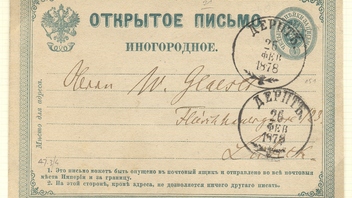 ОТКРЫТОЕ ПИСЬМО
ИНОГОРОДНОЕ.
ДЕРПТЪ
26
ФЕВ
1878
Herrn W. Glaeser
Мѣсто для адреса.
ДЕРПТЪ
26
ФЕВ
1878
1. Это письмо можетъ быть опущено въ почтовый ящикъ и отправлено по всѣ почтовыя
мѣста Имперіи и за границу.
2. На этой сторонѣ, кромѣ адреса, не дозволяется ничего другаго писать.